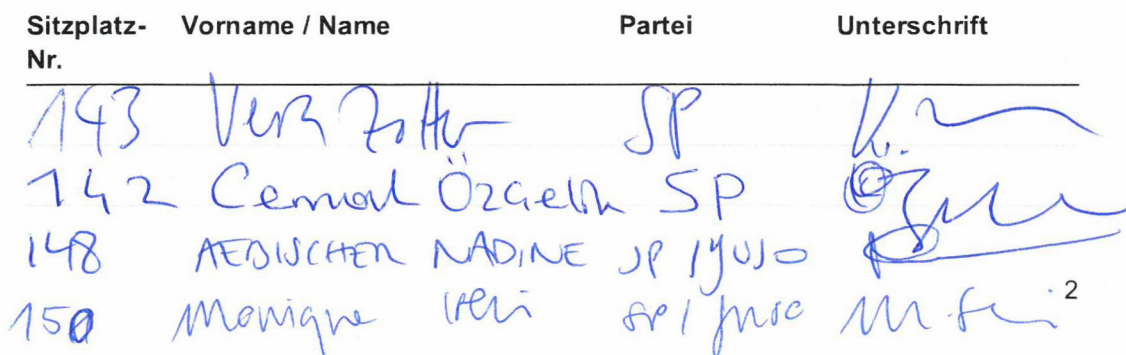 Sitzplatz- Vorname / Name Partei Unterschrift
Nr.
143 SP
142 Cemal Özçelik SP
148 AEBISCHER NADINE SP / JUSO
150 Monique SP / JUSO
2